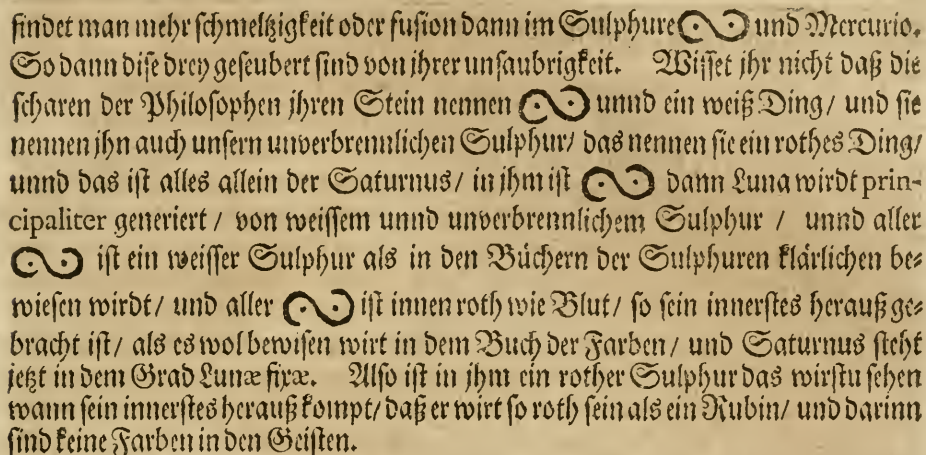 findet man mehr schmeltzigkeit oder fusion dann im Sulphure und Mercurio.
So dann dise drey geseubert sind von ihrer unsaubrigkeit. Wisset jhr nicht daß die
scharen der Philosophen jhren Stein nennen unnd ein weiß Ding/ und sie
nennen jhn auch unsern unverbrennlichen Sulphur/ das nennen sie ein rothes Ding/
unnd das ist alles allein der Saturnus/ in jhm ist dann Luna wirdt prin-
cipaliter generiert / von weissem unnd unverbrennlichem Sulphur / unnd aller
ist ein weisser Sulphur als in den Büchern der Sulphuren klärlichen be-
wiesen wirdt/ und aller ist innen roth wie Blut/ so sein innerstes herauß ge-
bracht ist/ als es wol bewisen wirt in dem Buch der Farben/ und Saturnus steht
jetzt in dem Grad Lunæ fixæ. Also ist in jhm ein rother Sulphur das wirstu sehen
wann sein innerstes herauß kompt/ daß er wirt so roth sein als ein Rubin/ und darinn
sind keine Farben in den Geisten.